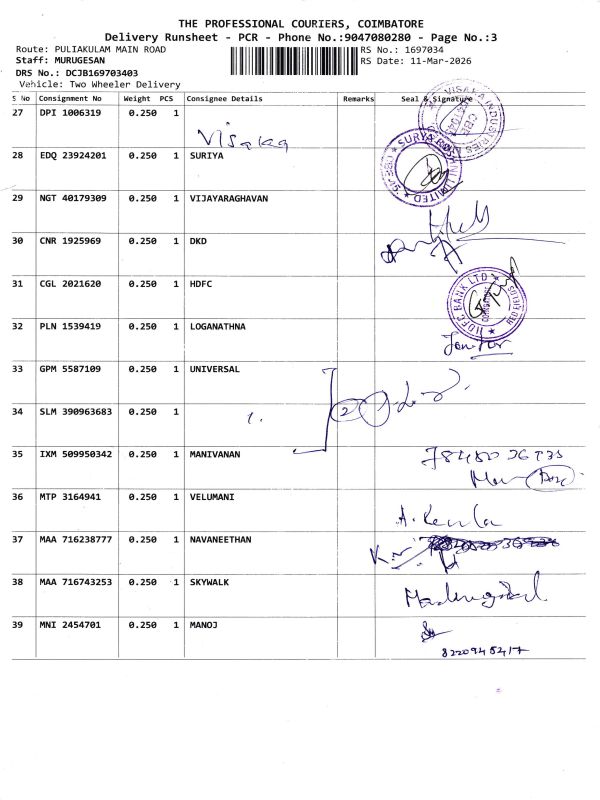 THE PROFESSIONAL COURIERS, COIMBATORE
Delivery Runsheet - PCR - Phone No.:9047080280 - Page No.:3
Route: PULIAKULAM MAIN ROAD RS No.: 1697034
Staff: MURUGESAN RS Date: 11-Mar-2026
DRS No.: DCJB169703403
Vehicle: Two Wheeler Delivery
S No Consignment No Weight PCS Consignee Details Remarks Seal & Signature
27 DPI 1006319 0.250 1
Visaka
VISAKA INDUSTRIES
28 EDQ 23924201 0.250 1 SURIYA
SURYA ROSHNI LIMITED
29 NGT 40179309 0.250 1 VIJAYARAGHAVAN
30 CNR 1925969 0.250 1 DKD
31 CGL 2021620 0.250 1 HDFC
HDFC BANK LTD
32 PLN 1539419 0.250 1 LOGANATHNA
33 GPM 5587109 0.250 1 UNIVERSAL
34 SLM 390963683 0.250 1
2
35 IXM 509950342 0.250 1 MANIVANAN
36 MTP 3164941 0.250 1 VELUMANI
37 MAA 716238777 0.250 1 NAVANEETHAN
38 MAA 716743253 0.250 1 SKYWALK
39 MNI 2454701 0.250 1 MANOJ
8220945417